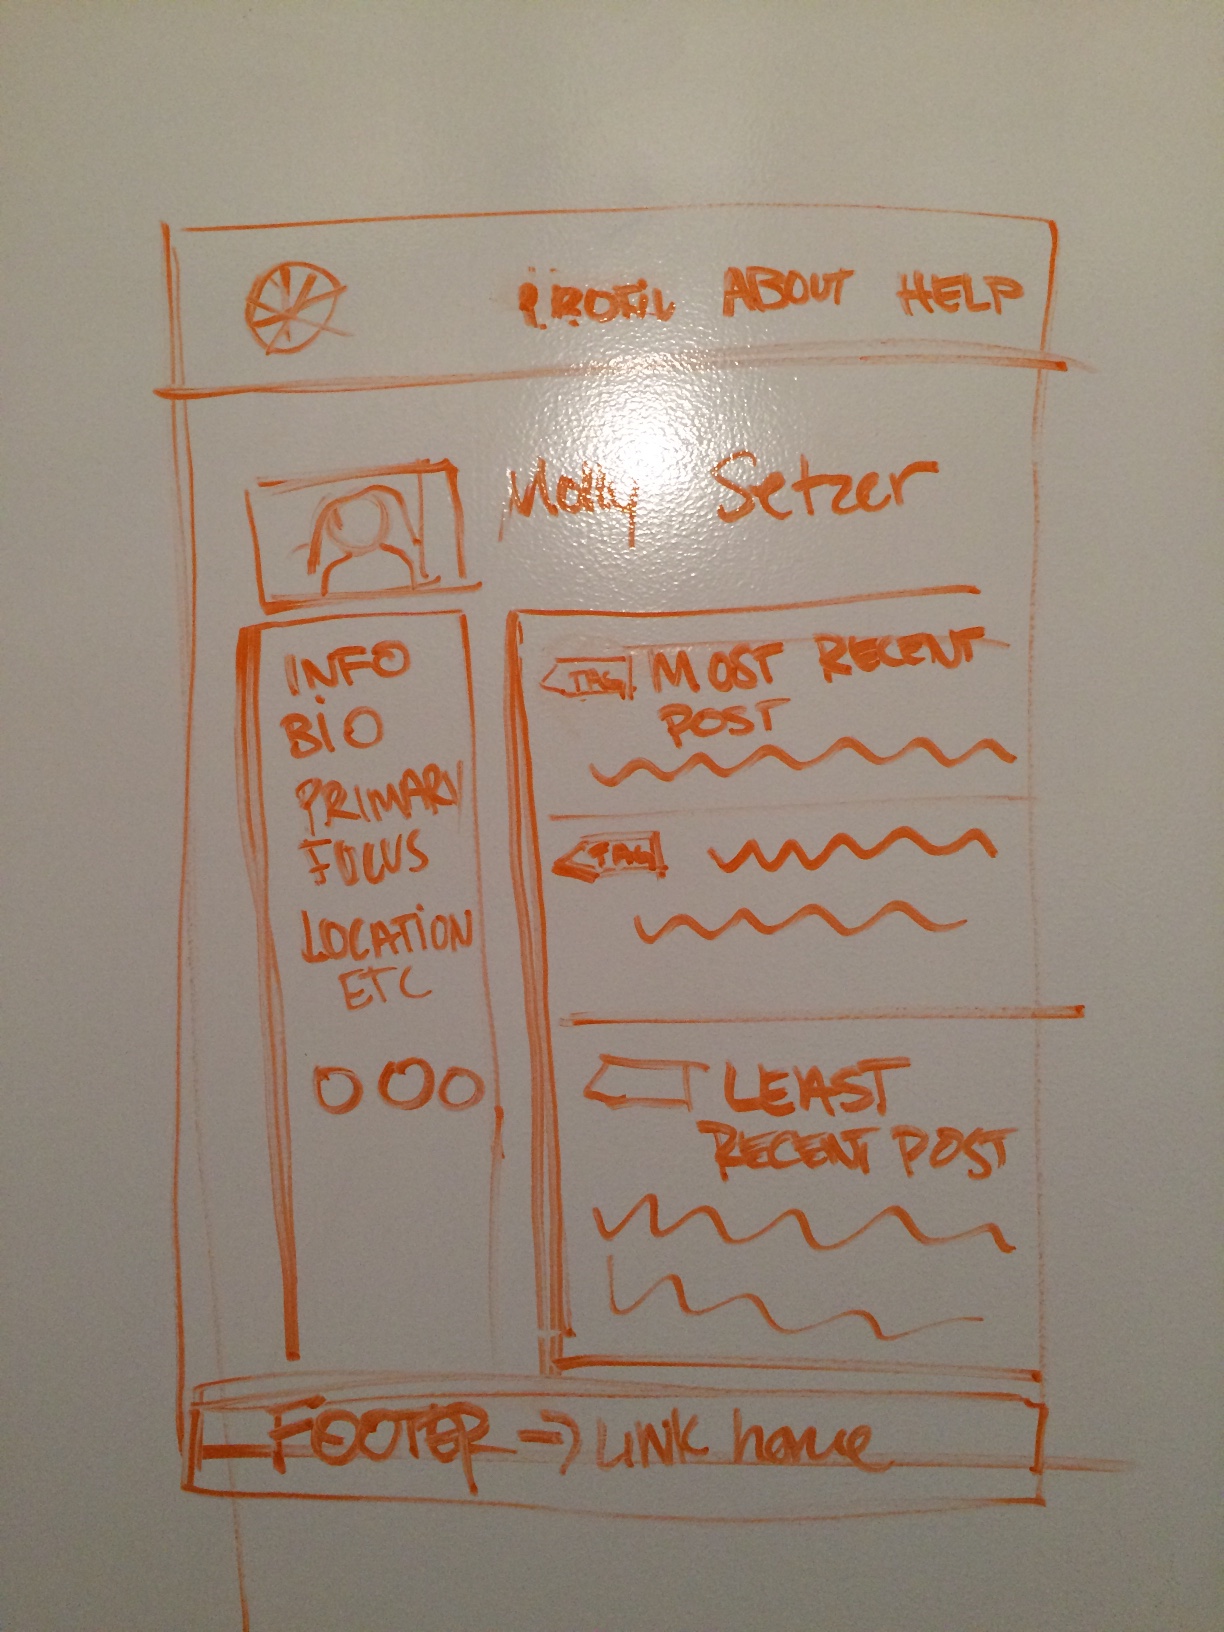 PROFIL ABOUT HELP
Molly Setzer
INFO
BIO
PRIMARY
FOCUS
LOCATION
ETC
TAG MOST RECENT
POST
TAG
LEAST
RECENT POST
FOOTER → LINK home